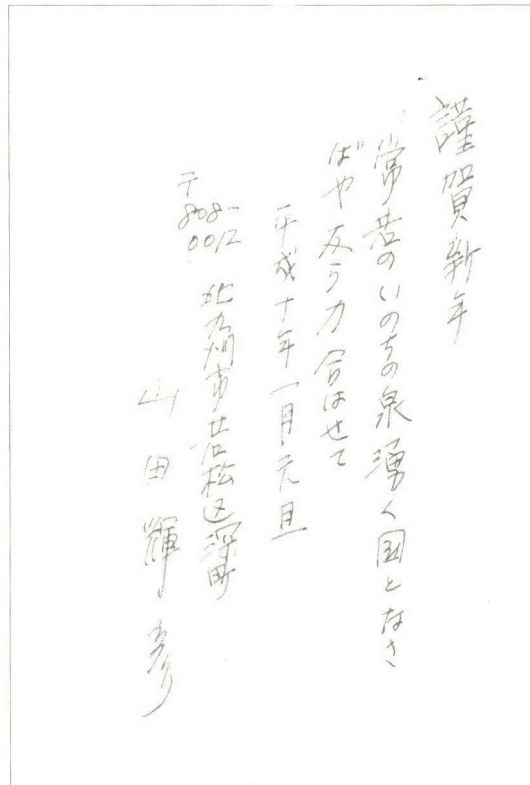 謹賀新年
常若のいのちの泉湧く国となさ
ばや友う力合はせて
平成十年一月元旦
〒808-0012
北九州市若松区深町
山田輝彦